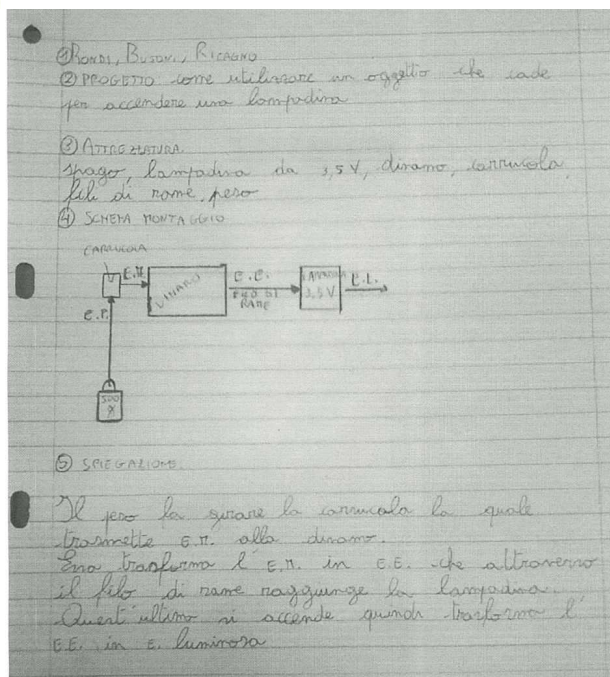 ① RONDI, BUSONI, RICAGNO
② PROGETTO come utilizzare un oggetto che cade
per accendere una lampadina
③ ATTREZZATURA
spago, lampadina da 3,5 V, dinamo, carrucola
fili di rame, peso
④ SCHEMA MONTAGGIO
CARRUCOLA
E.M.
DINAMO
E.E.
FILO DI
RAME
LAMPADINA
3,5 V
E.L.
E.P.
500
g
⑤ SPIEGAZIONE
Il peso fa girare la carrucola la quale
trasmette E.M. alla dinamo.
Essa trasforma l'E.M. in E.E. che attraverso
il filo di rame raggiunge la lampadina.
Quest'ultimo si accende quindi trasforma l'
E.E. in E. luminosa